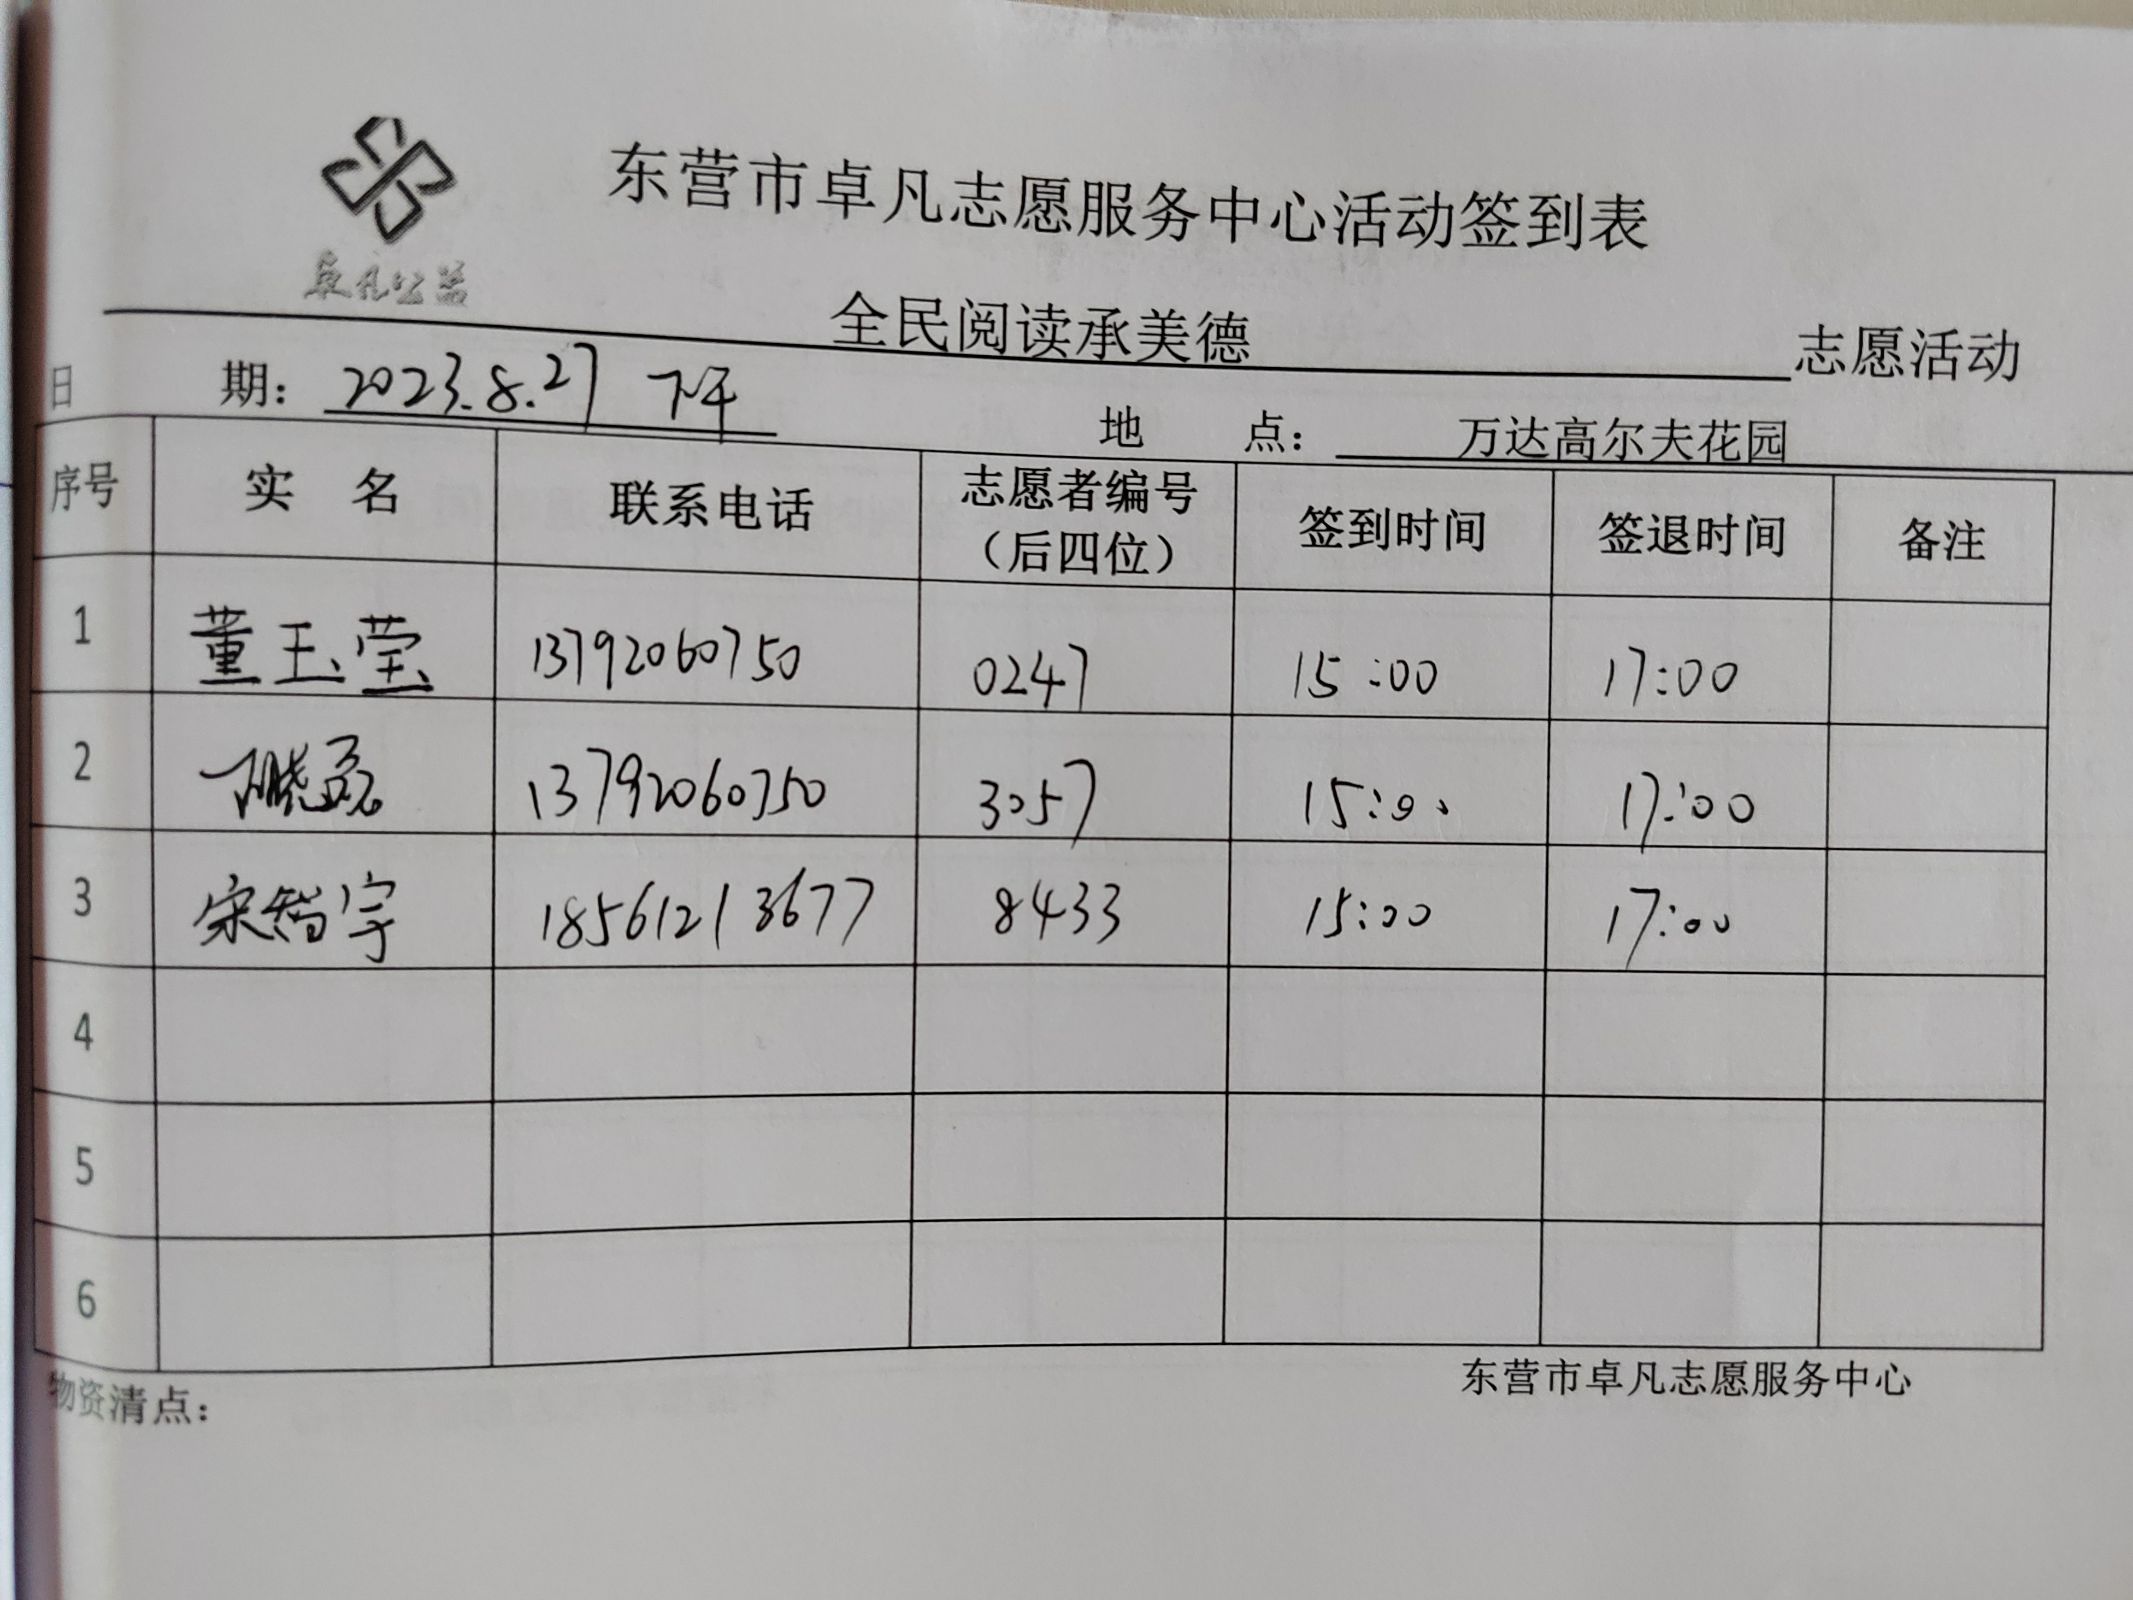 卓凡公益
东营市卓凡志愿服务中心活动签到表
全民阅读承美德 志愿活动
日 期: 2023.8.27 下午 地 点: 万达高尔夫花园
序号 实 名 联系电话 志愿者编号（后四位） 签到时间 签退时间 备注
1 董玉莹 13792060750 0247 15:00 17:00
2 13792060750 3057 15:00 17:00
3 宋智宇 18561213677 8433 15:00 17:00
4
5
6
物资清点:
东营市卓凡志愿服务中心